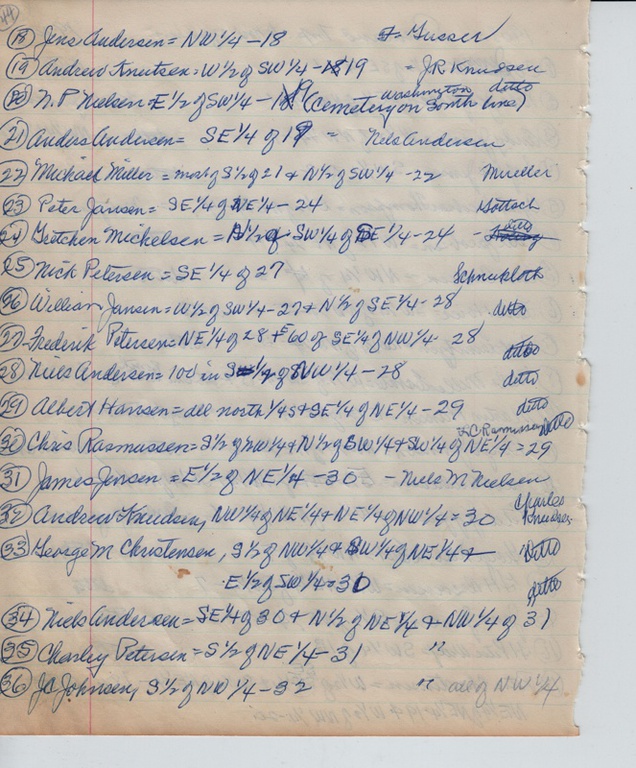 44
(18) Jens Andersen = NW 1/4 - 18 F Gusser
(19) Andrew Knutsen = W 1/2 of SW 1/4 - 19 = J.R. Knudsen
(20) N. P. Nielsen = E 1/2 of SW 1/4 - 19 (Cemetery on South line) Washington ditto
(21) Anders Andersen = SE 1/4 of 19 - Nels Andersen
(22) Michael Miller = most of S 1/2 of 21 & N 1/2 of SW 1/4 - 22 Mueller
(23) Peter Jansen = SE 1/4 of NE 1/4 - 24 Hottsch
(24) Gretchen Michelsen = N 1/2 of SW 1/4 of SE 1/4 - 24 - ditto
(25) Nick Petersen = SE 1/4 of 27 Schnukloth
(26) William Jansen = W 1/2 of SW 1/4 - 27 & N 1/2 of SE 1/4 - 28 ditto
(27) Frederik Petersen = NE 1/4 of 28 + E 60 of SE 1/4 of NW 1/4 28 ditto
(28) Niels Andersen = 100 in NW 1/4 - 28 ditto
(29) Albert Hansen = all north 1/4s & SE 1/4 of NE 1/4 - 29 ditto
(30) Chris Rasmussen = S 1/2 of NW 1/4 & N 1/2 of SW 1/4 & SW 1/4 of NE 1/4 = 29 C Rasmussen ditto
(31) James Jensen = E 1/2 of NE 1/4 - 30 - Niels M Nielsen
(32) Andrew Knudsen, NW 1/4 of NE 1/4 & NE 1/4 of NW 1/4 = 30 Charles Knudsen
(33) George M Christensen, S 1/2 of NW 1/4 & SW 1/4 of NE 1/4 & Ditto
E 1/2 of SW 1/4 = 30 ditto
(34) Niels Andersen = SE 1/4 of 30 & N 1/2 of NE 1/4 & NW 1/4 of 31
(35) Charley Petersen = S 1/2 of NE 1/4 - 31 "
(36) J.C. Johnsen, S 1/2 of NW 1/4 - 32 " all of NW 1/4